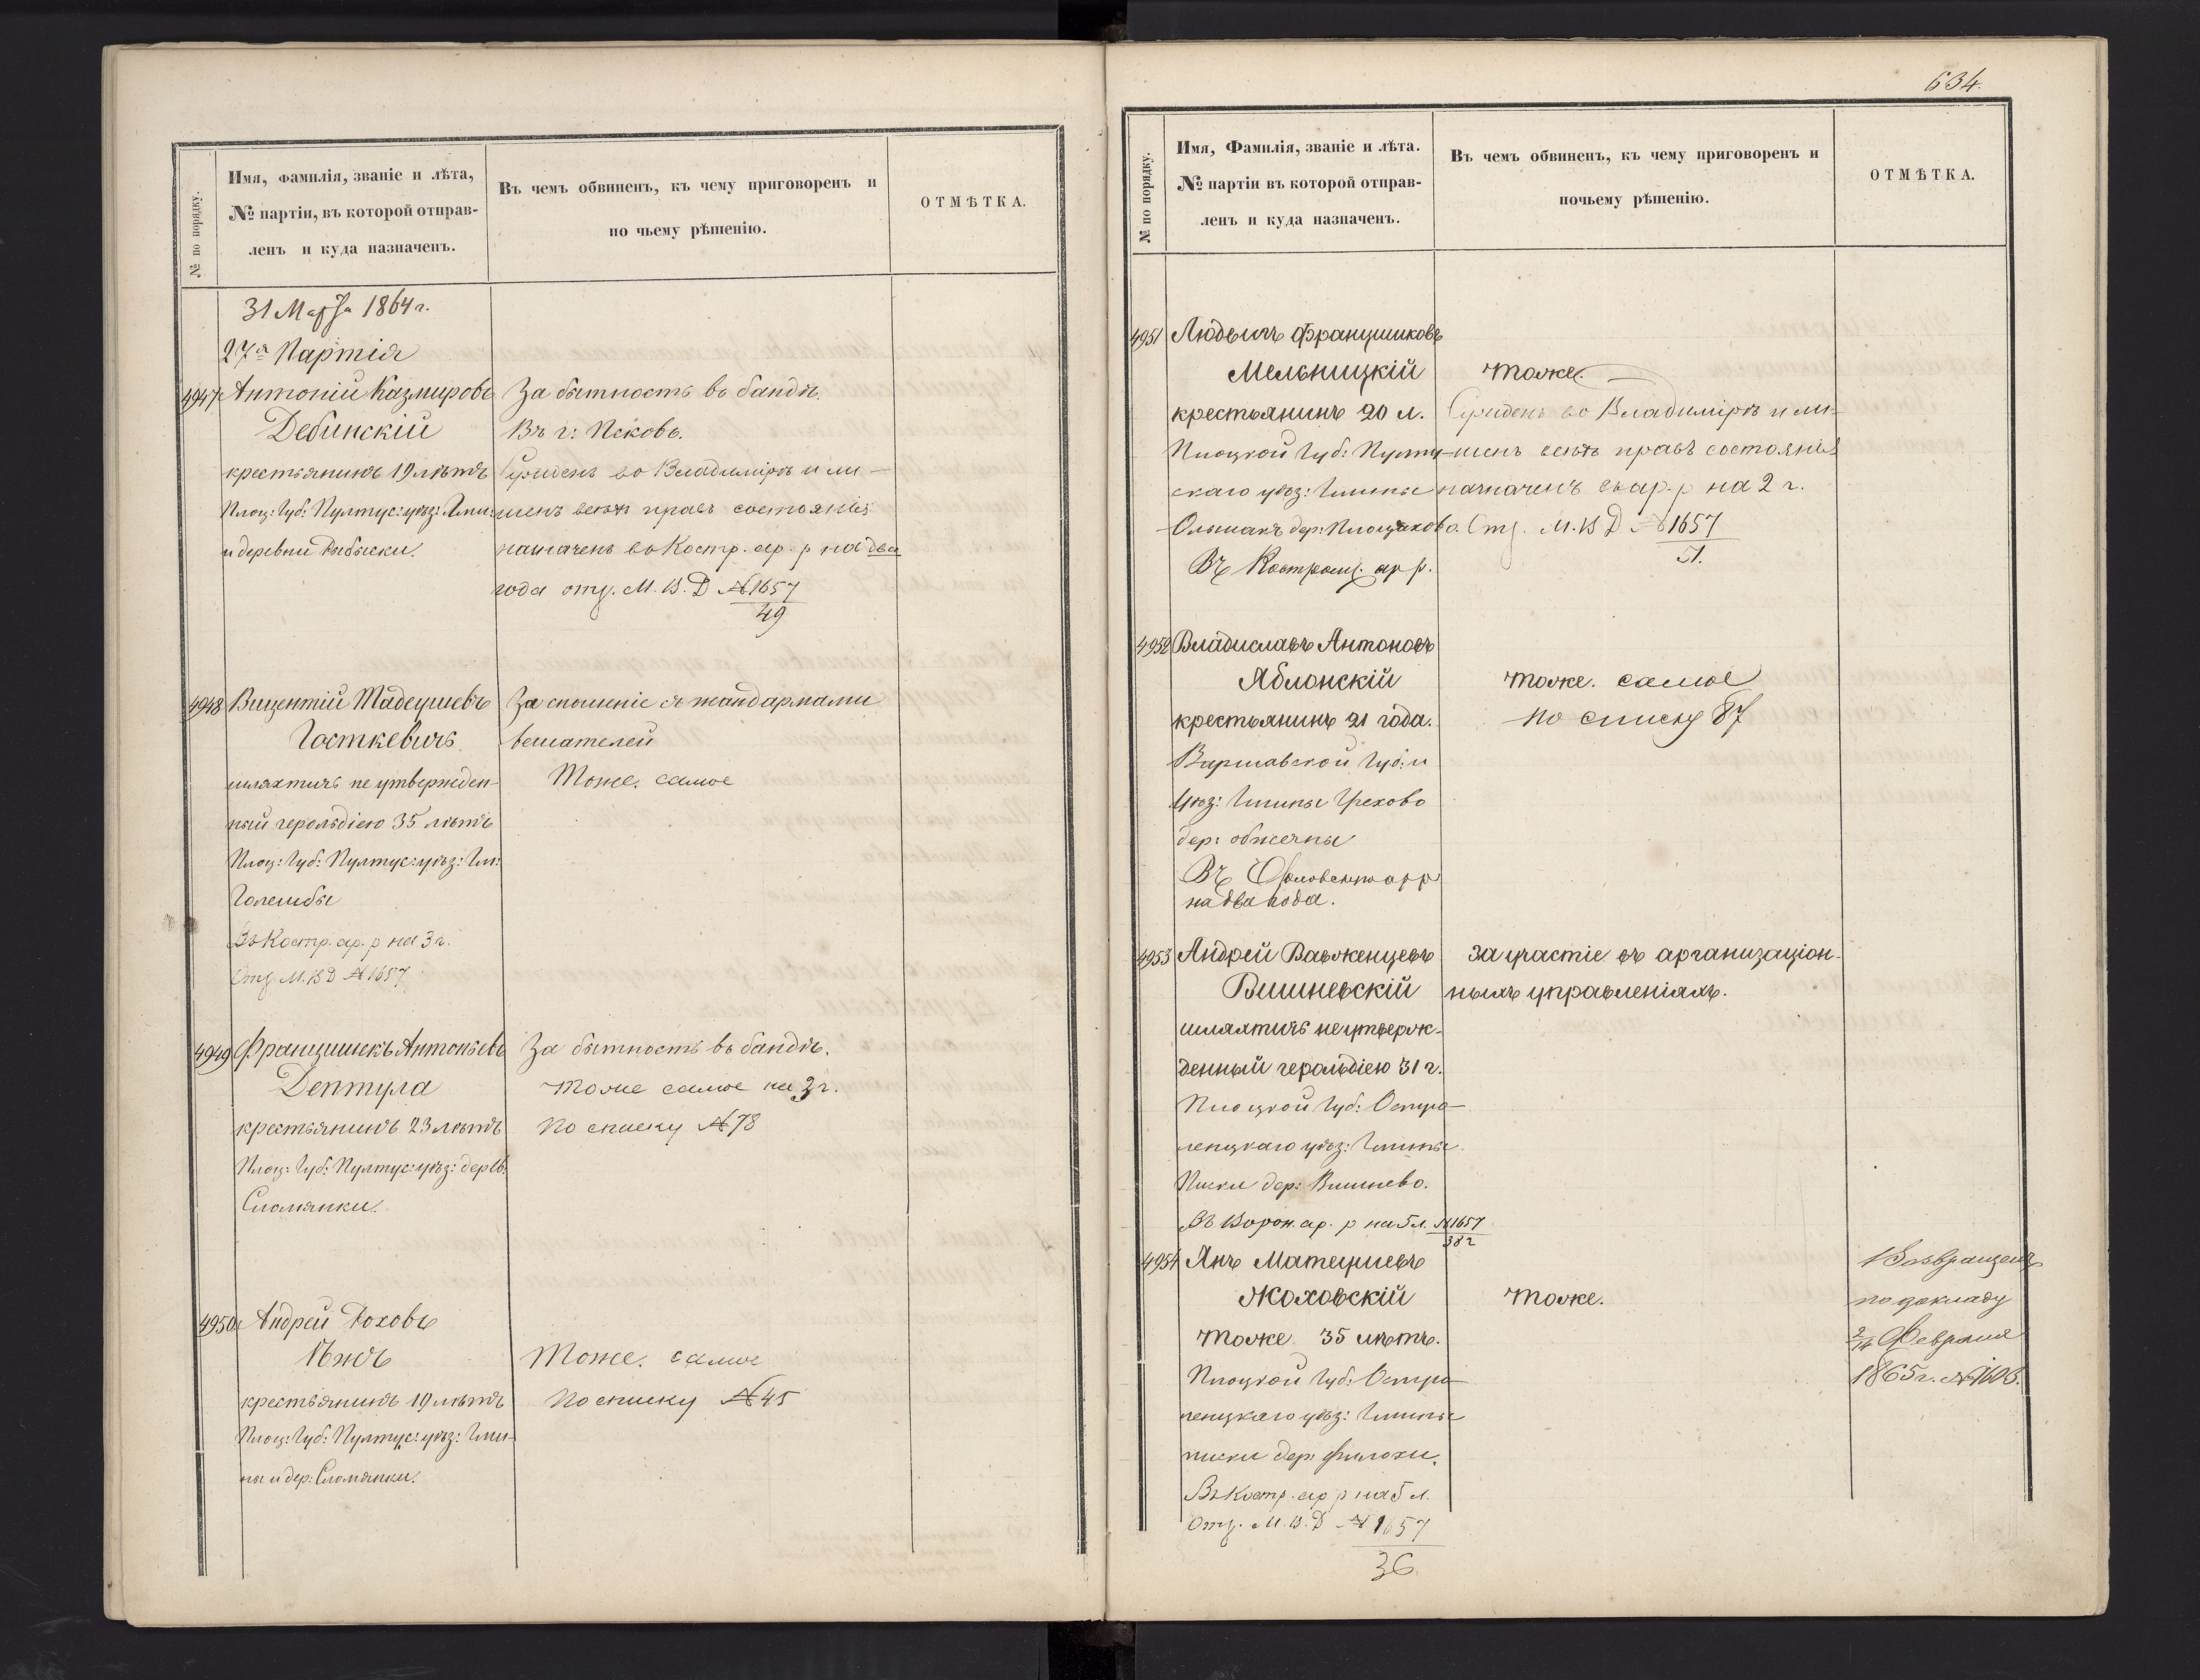 № по порядку.
Имя, фамилія, званіе и лѣта,
№ партіи, въ которой отправ-
ленъ и куда назначенъ.
Въ чемъ обвиненъ, къ чему приговоренъ и
по чьему рѣшенію.
ОТМѢТКА.
31 Марта 1864 г.
27я Партія
4947 Антоній Казмировъ
Дебинскій
крестьянинъ 19 лѣтъ
Плоц: Губ: Пултус: уѣз: Гми:
и деревни
За бытность въ бандѣ.
Въ г: Псковъ.
Сужденъ во Владимірѣ и ли-
шенъ всѣхъ правъ состоянія
назначенъ въ Костр. ар. р на два
года отн. М. В. Д №1657
49
4948 Вицентій Тадеушевъ
Госткевичъ
шляхтичъ не утвержден-
ный герольдіею 35 лѣтъ
Плоц: Губ: Пултус: уѣз: Гм:
Голембы
Въ Костр. ар. р на 3 г.
Отн. М. В Д №1657
За сношеніе съ жандармами
вешателей
Тоже. самое
4949 Францишекъ Антоньевъ
Дептула
крестьянинъ 23 лѣтъ
Плоц: Губ: Пултус: уѣз: дер:
Сломянки.
За бытность въ бандѣ.
Тоже самое на 3 г.
По списку №78
4950 Андрей Роховъ
Ѣжъ
крестьянинъ 19 лѣтъ
Плоц: Губ: Пултус: уѣз: Гми-
ны и дер: Сломянки.
Тоже. самое
По списку №45
634.
№ по порядку.
Имя, Фамилія, званіе и лѣта.
№ партіи въ которой отправ-
ленъ и куда назначенъ.
Въ чемъ обвиненъ, къ чему приговоренъ и
почьему рѣшенію.
ОТМѢТКА.
4951 Людвигъ Францишковъ
Мельницкій
крестьянинъ 20 л.
Плоцкой Губ: Пулту-
скаго уѣз: Гмины
Ольшакъ дер: Площаково.
Въ Костром. ар р.
тоже.
Сужденъ во Владимірѣ и ли-
шенъ всѣхъ правъ состоянія
назначенъ въ ар. р на 2 г.
Отн. М. В Д №1657
51.
4952 Владиславъ Антоновъ
Яблонскій
крестьянинъ 21 года.
Варшавской Губ: и
Уѣз: Гмины Грехово
дер:
Въ Орловскую а р р
на два года.
тоже. самое
по списку 87
4953 Андрей Вавженцевъ
Вишневскій
шляхтичъ неутверж-
денный герольдіею 31 г.
Плоцкой Губ: Остро-
ленцкаго уѣз: Гмины
Писки дер: Вишнево.
Въ Ворон. ар. р на 5 л. №1657
382
за участіе въ арганизаціон-
ныхъ управленіяхъ.
4954 Янъ Матеушевъ
Жоховскій
тоже 35 лѣтъ.
Плоцкой Губ: Остро-
ленцкаго уѣз: Гмины
писки дер:
Въ Костр. ар р на 5 л.
Отн. М. В. Д №1657
36
тоже.
Возвращенъ
по докладу
2/14 Февраля
1865 г. №1603.